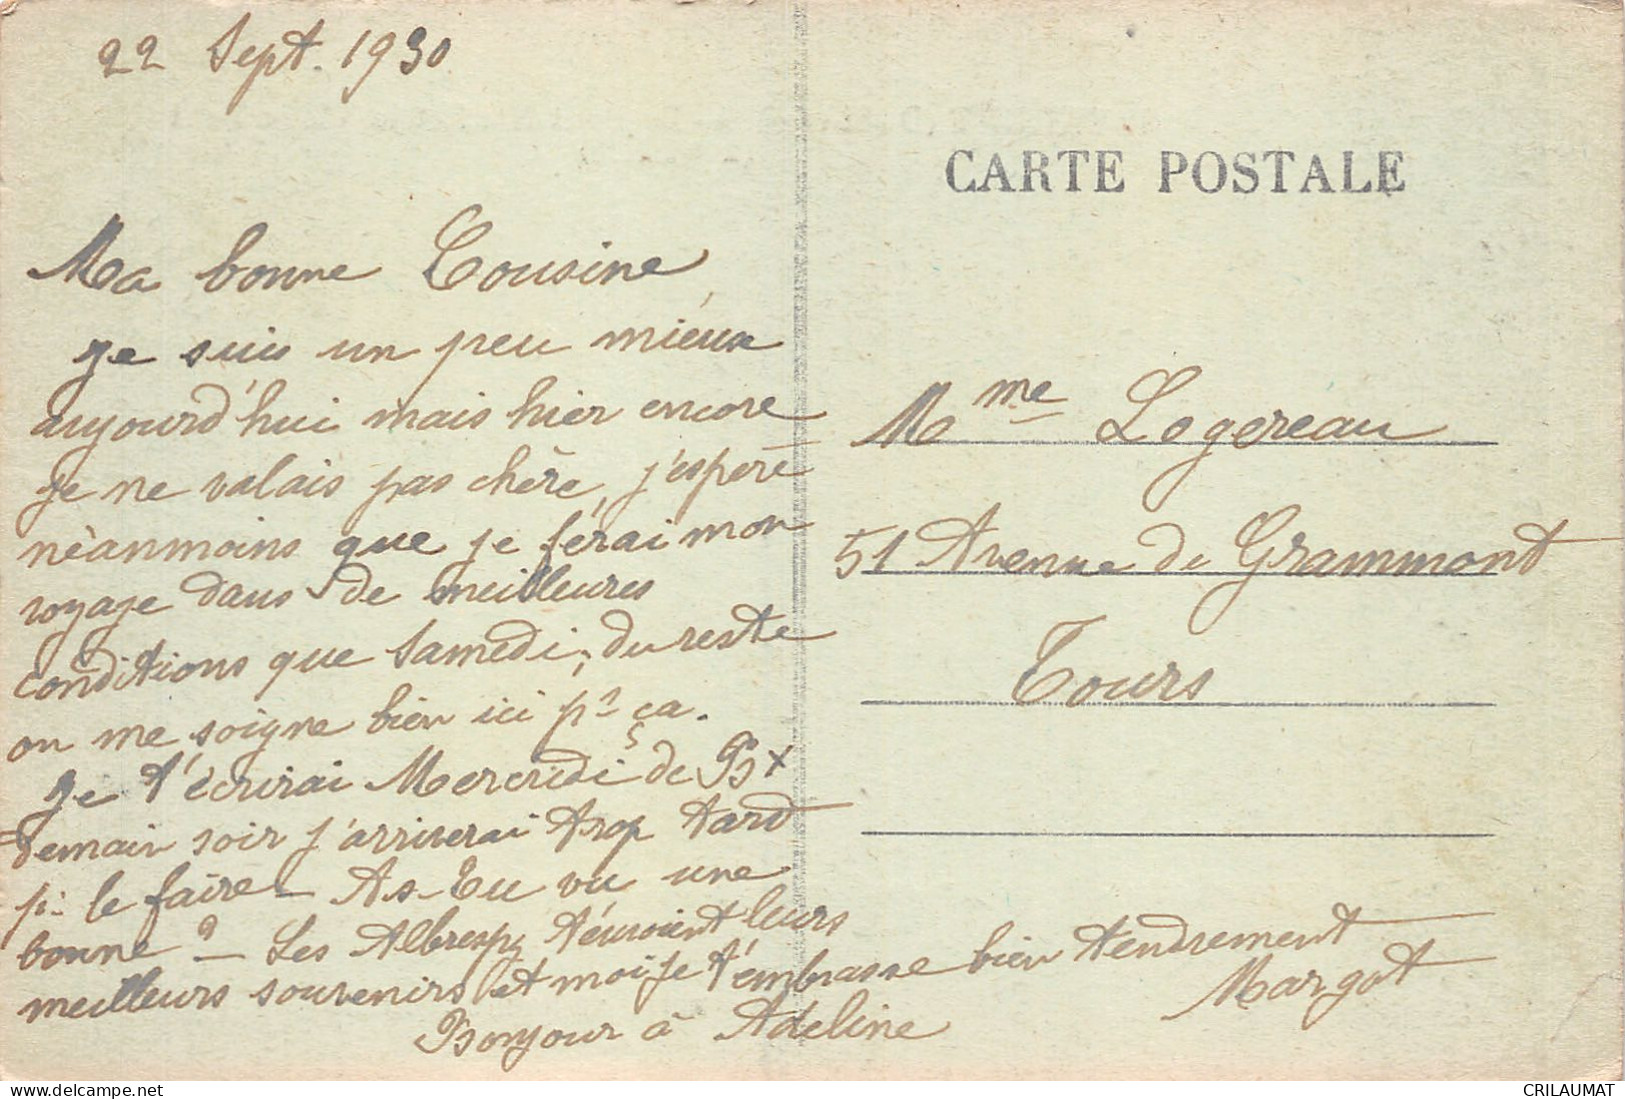 22 Sept. 1930
Ma bonne Cousine,
je suis un peu mieux
aujourd'hui mais hier encore
je ne valais pas chère, j'espère
nèanmoins que je férai mon
voyage dans de meilleures
conditions que Samedi; du reste
on me soigne bien ici pr ça.
Je t'écrirai Mercredi de Bx
demain soir j'arriverai trop tard
pr le faire - As-tu vu une
bonne ? - Les t'envoient leurs
meilleurs souvenirs et moi je t'embrasse bien tendrement
Margot
Bonjour à Adeline
CARTE POSTALE
Mme Logereau
51 Avenue de Grammont
Tours
delcampe.net
CRILAUMAT